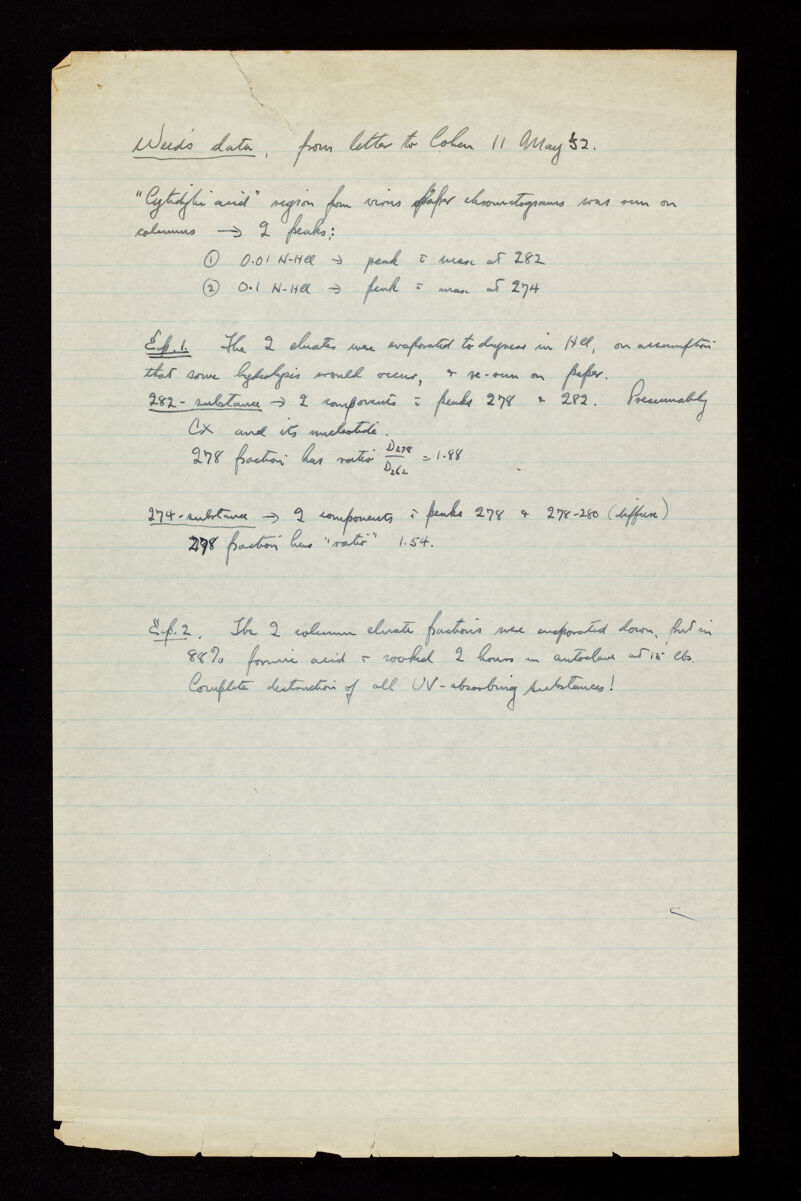 Weed's data, from letter to Cohen 11 May 52.
"Cytidylic acid" region from virus paper chromatograms was run on
columns → 2 peaks:
① 0.01 N-HCl → peak c̄ max at 282
② 0.1 N-HCl → peak c̄ max at 274
Exp.1. The 2 eluates were evaporated to dryness in HCl, on assumption
that some hydrolysis would occur, & re-run on paper.
282-substance → 2 components c̄ peaks 278 & 282. Presumably
CX and its nucleotide.
278 fraction has ratio D278/D262 = 1.88
274-substance → 2 components c̄ peaks 278 & 278-280 (diffuse)
278 fraction has "ratio" 1.54.
Exp.2. The 2 column eluate fractions were evaporated down, put in
88% formic acid & cooked 2 hours in autoclave at 15 lbs.
Complete destruction of all UV-absorbing substances!